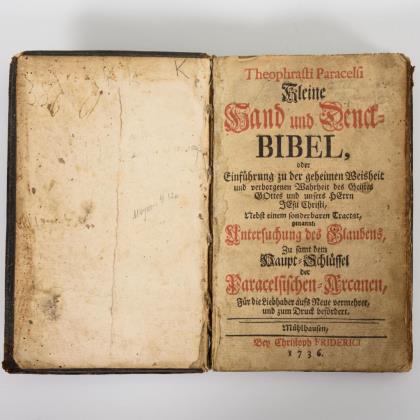 K
Theophrasti Paracelsi
Kleine
Hand und Denck-
BIBEL,
oder
Einführung zu der geheimen Weisheit
und verborgenen Wahrheit des Geistes
GOttes und unsers HErrn
JEsu Christi,
Nebst einem sonderbaren Tractat,
genannt:
Untersuchung des Glaubens,
Zu samt dem
Haupt-Schlüssel
der
Paracelsischen-Arcanen,
Für die Liebhaber aufs Neue vermehret,
und zum Druck befördert.
Mühlhausen,
Bey Christoph FRIDERICI
1736.